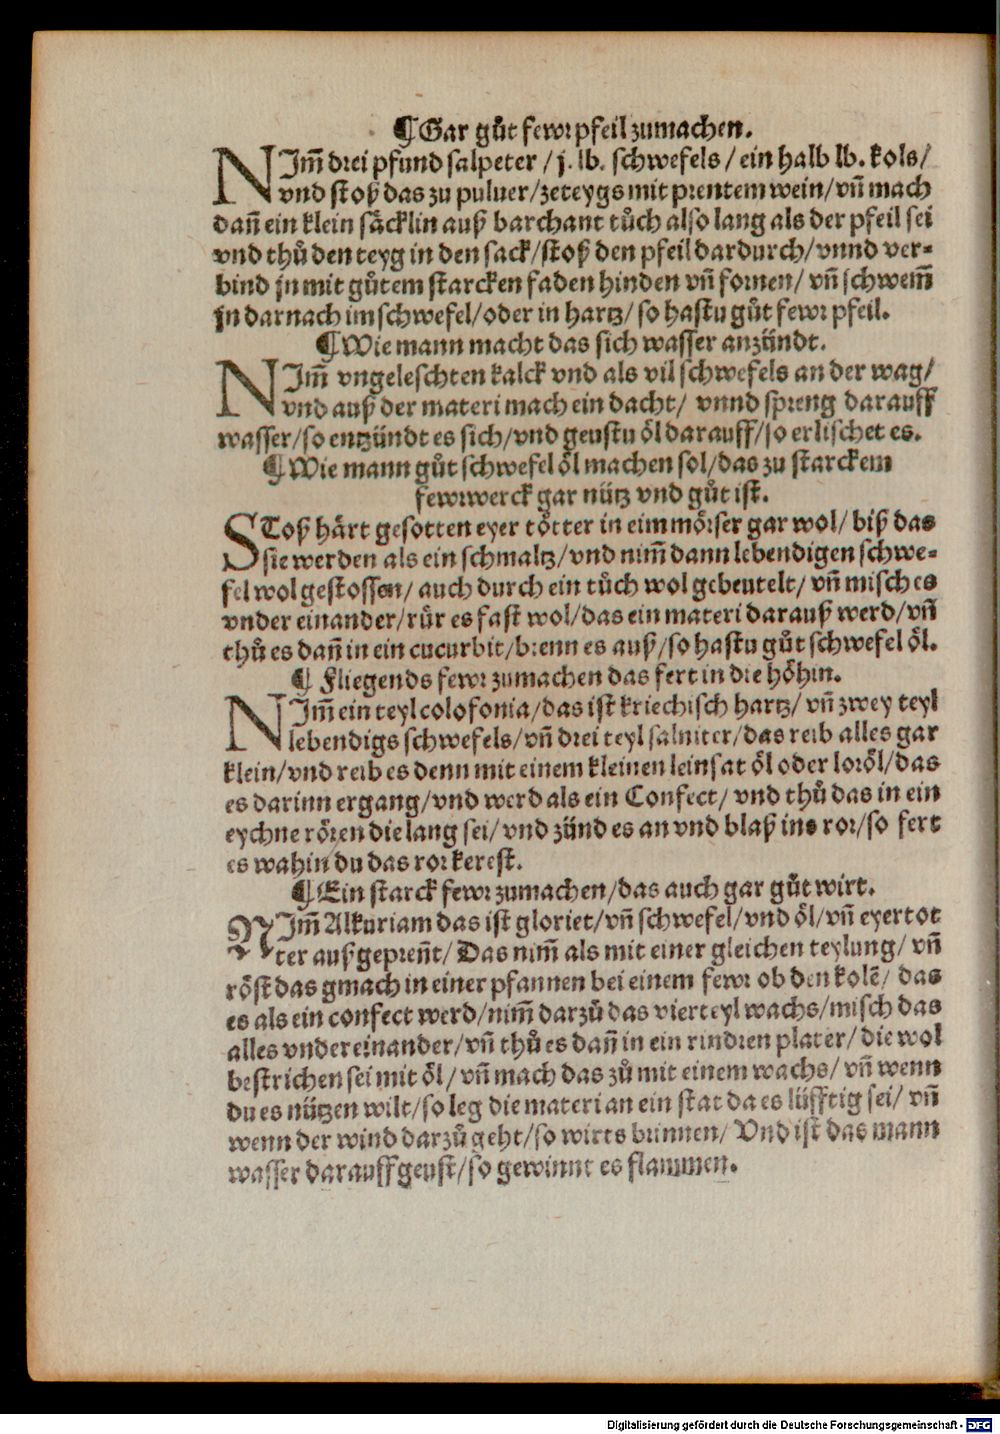 ¶Gar gůt fewrpfeil zumachen.
NImm̃ drei pfund salpeter / j. lb. schwefels / ein halb lb. kols/
vnd stoß das zu puluer/zeteygs mit prentem wein/vñ mach
dañ ein klein säcklin auß barchant tůch also lang als der pfeil sei
vnd thů den teyg in den sack/stoß den pfeil dardurch/vnnd ver-
bind jn mit gůtem starcken faden hinden vñ fornen/ vñ schwem̃
jn darnach im schwefel/oder in hartz/ so hastu gůt fewr pfeil.
¶Wie mann macht das sich wasser anzündt.
NIm̃ vngeleschten kalck vnd als vil schwefels an der wag/
vnd auß der materi mach ein dacht/ vnnd spreng darauff
wasser/so entzündt es sich/vnd geustu öl darauff/so erlischet es.
¶Wie mann gůt schwefel öl machen sol/das zu starckem
fewrwerck gar nütz vnd gůt ist.
SToß härt gesotten eyer tötter in eim mörser gar wol/ biß das
sie werden als ein schmaltz/vnd nim̃ dann lebendigen schwe-
fel wol gestossen/ auch durch ein tůch wol gebeutelt/ vñ misch es
vnder einander/rür es fast wol/das ein materi darauß werd/vñ
thů es dañ in ein cucurbit/brenn es auß/so hastu gůt schwefel öl.
¶ Fliegends fewr zumachen das fert in die höhin.
NIm̃ ein teyl colofonia/das ist kriechisch hartz/ vñ zwey teyl
lebendigs schwefels/vñ drei teyl salniter/das reib alles gar
klein/vnd reib es denn mit einem kleinen leinsat öl oder loröl/das
es darinn ergang/vnd werd als ein Confect/ vnd thů das in ein
eychne rören die lang sei/vnd zünd es an vnd blaß ins ror/so fert
es wahin du das ror kerest.
¶Ein starck fewr zumachen/das auch gar gůt wirt.
NIm̃ Alkuriam das ist gloriet/vñ schwefel/vnd öl/vñ eyertot
ter außgepreñt/ Das nim̃ als mit einer gleichen teylung/ vñ
röst das gmach in einer pfannen bei einem fewr ob den kolẽ/ das
es als ein confect werd/nim̃ darzů das vierteyl wachs/misch das
alles vndereinander/vñ thů es dañ in ein rindren plater/ die wol
bestrichen sei mit öl/vñ mach das zů mit einem wachs/ vñ wenn
du es nützen wilt/so leg die materi an ein stat da es lüfftig sei/ vñ
wenn der wind darzů geht/so wirts brinnen/ Vnd ist das mann
wasser darauff geust/so gewinnt es flammen.
Digitalisierung gefördert durch die Deutsche Forschungsgemeinschaft - DFG